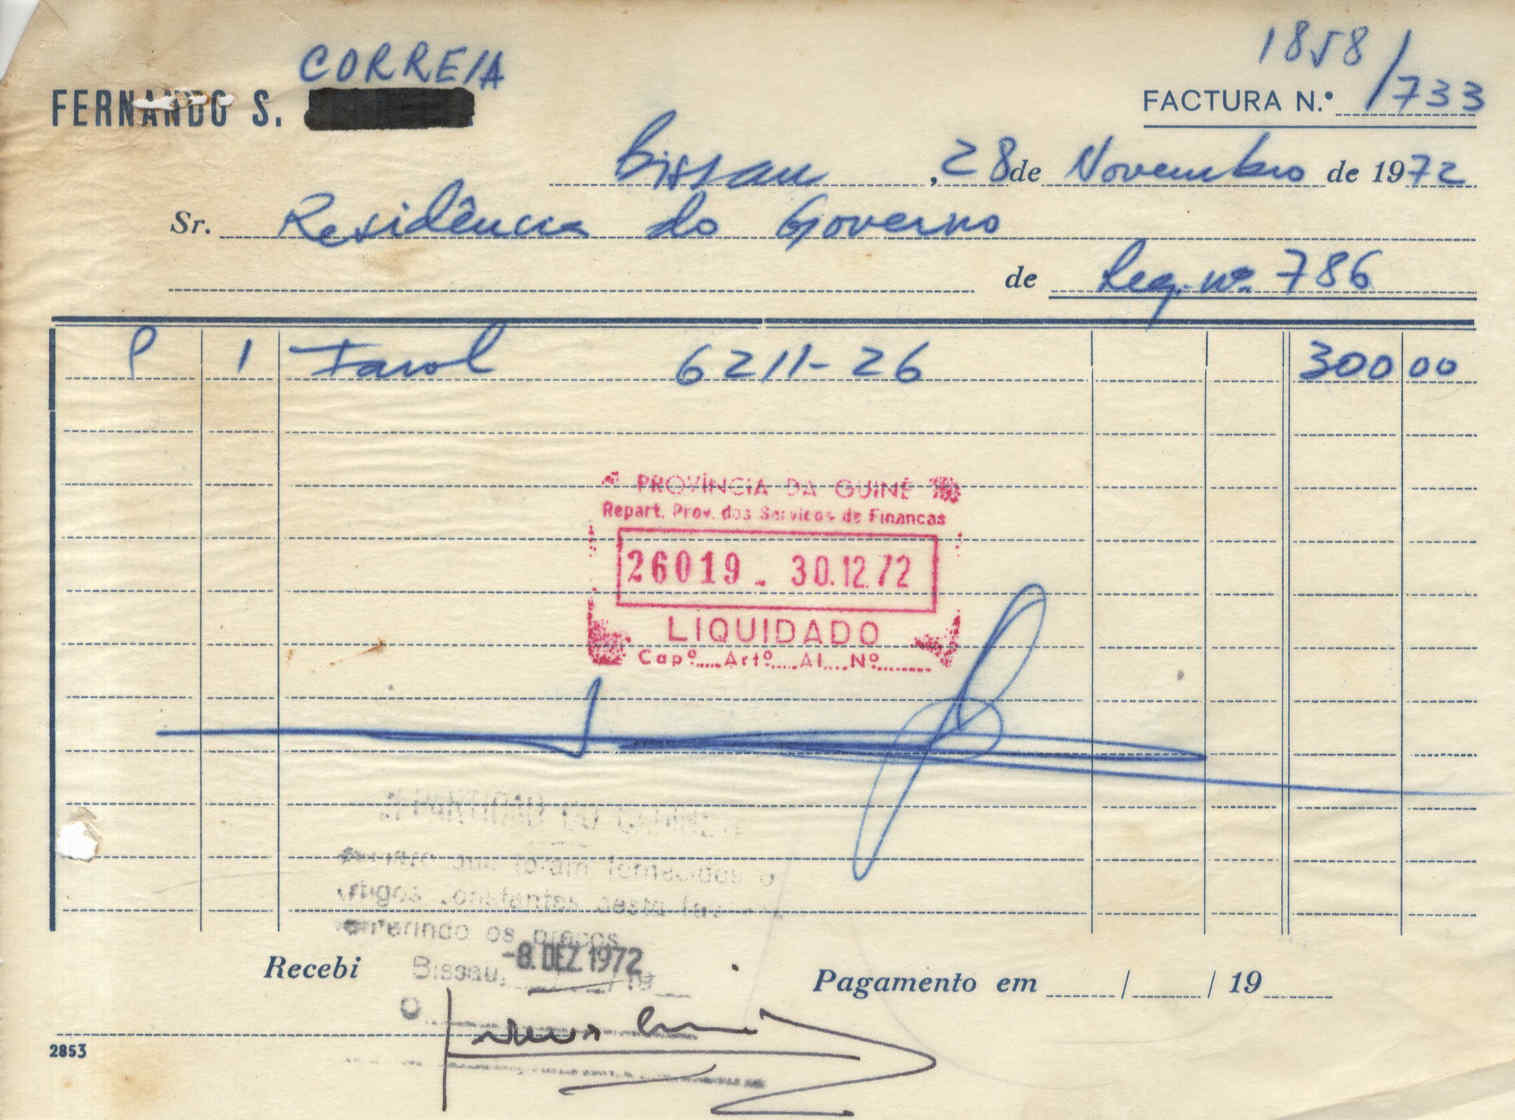 CORREIA
FERNANDO S.
FACTURA N.º 1858/733
Bissau, 28 de Novembro de 1972
Sr. Residência do Governo
de Req. nº 786
P 1 Farol 6211-26 300 00
PROVÍNCIA DA GUINÉ
Repart. Prov. dos Serviços de Finanças
26019 - 30.12.72
LIQUIDADO
Capº.... Artº.... Al.... Nº........
que foram fornecidos o
artigos constantes desta
conferindo os preços
Bissau, -8. DEZ 1972 19
O
Recebi
Pagamento em / / 19
2853